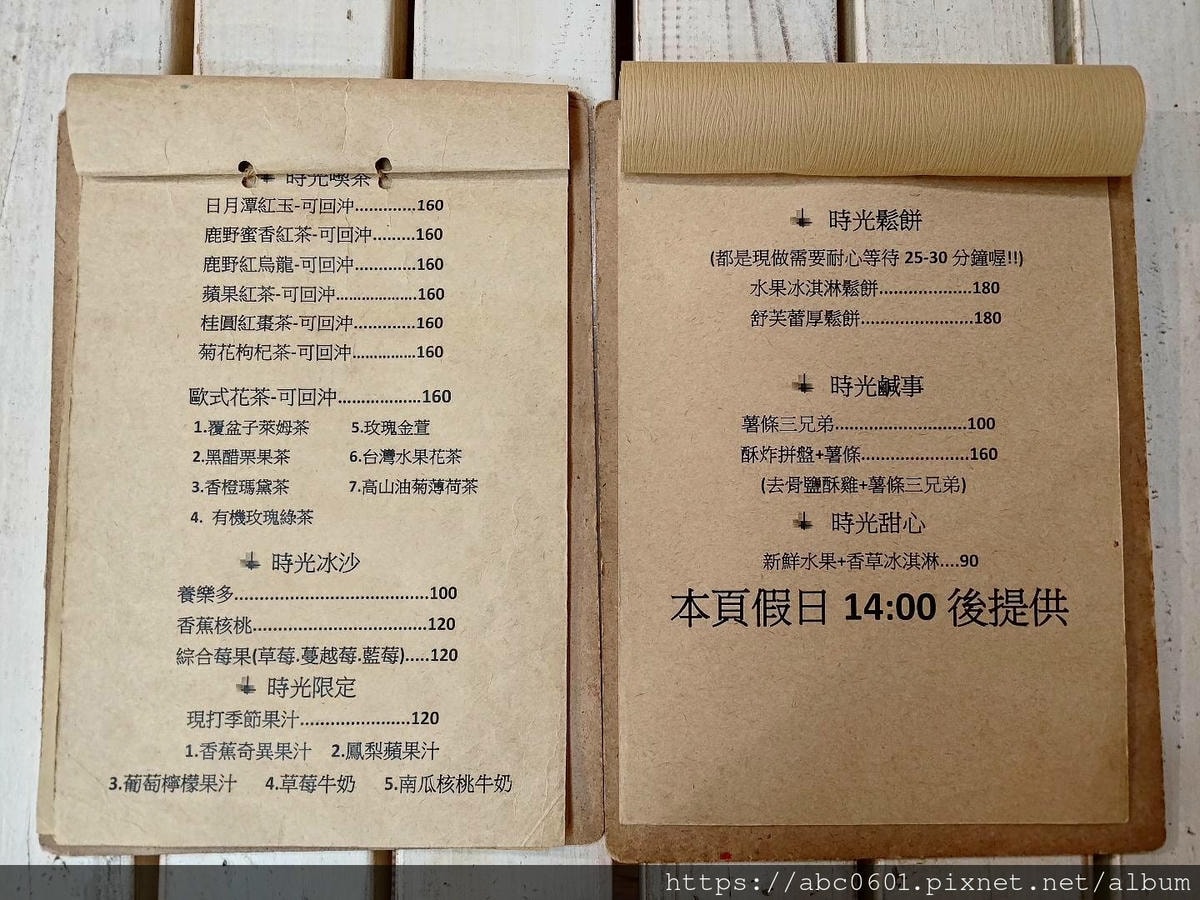 時光喫茶
日月潭紅玉-可回沖.............160
鹿野蜜香紅茶-可回沖.........160
鹿野紅烏龍-可回沖.............160
蘋果紅茶-可回沖.................160
桂圓紅棗茶-可回沖.............160
菊花枸杞茶-可回沖.............160
歐式花茶-可回沖..................160
1.覆盆子萊姆茶 5.玫瑰金萱
2.黑醋栗果茶 6.台灣水果花茶
3.香橙瑪黛茶 7.高山油菊薄荷茶
4. 有機玫瑰綠茶
時光冰沙
養樂多.........................................100
香蕉核桃.....................................120
綜合莓果(草莓.蔓越莓.藍莓).....120
時光限定
現打季節果汁.......................120
1.香蕉奇異果汁 2.鳳梨蘋果汁
3.葡萄檸檬果汁 4.草莓牛奶 5.南瓜核桃牛奶
時光鬆餅
(都是現做需要耐心等待 25-30 分鐘喔!!)
水果冰淇淋鬆餅....................180
舒芙蕾厚鬆餅........................180
時光鹹事
薯條三兄弟...........................100
酥炸拼盤+薯條.......................160
(去骨鹽酥雞+薯條三兄弟)
時光甜心
新鮮水果+香草冰淇淋....90
本頁假日 14:00 後提供
https://abc0601.pixnet.net/album